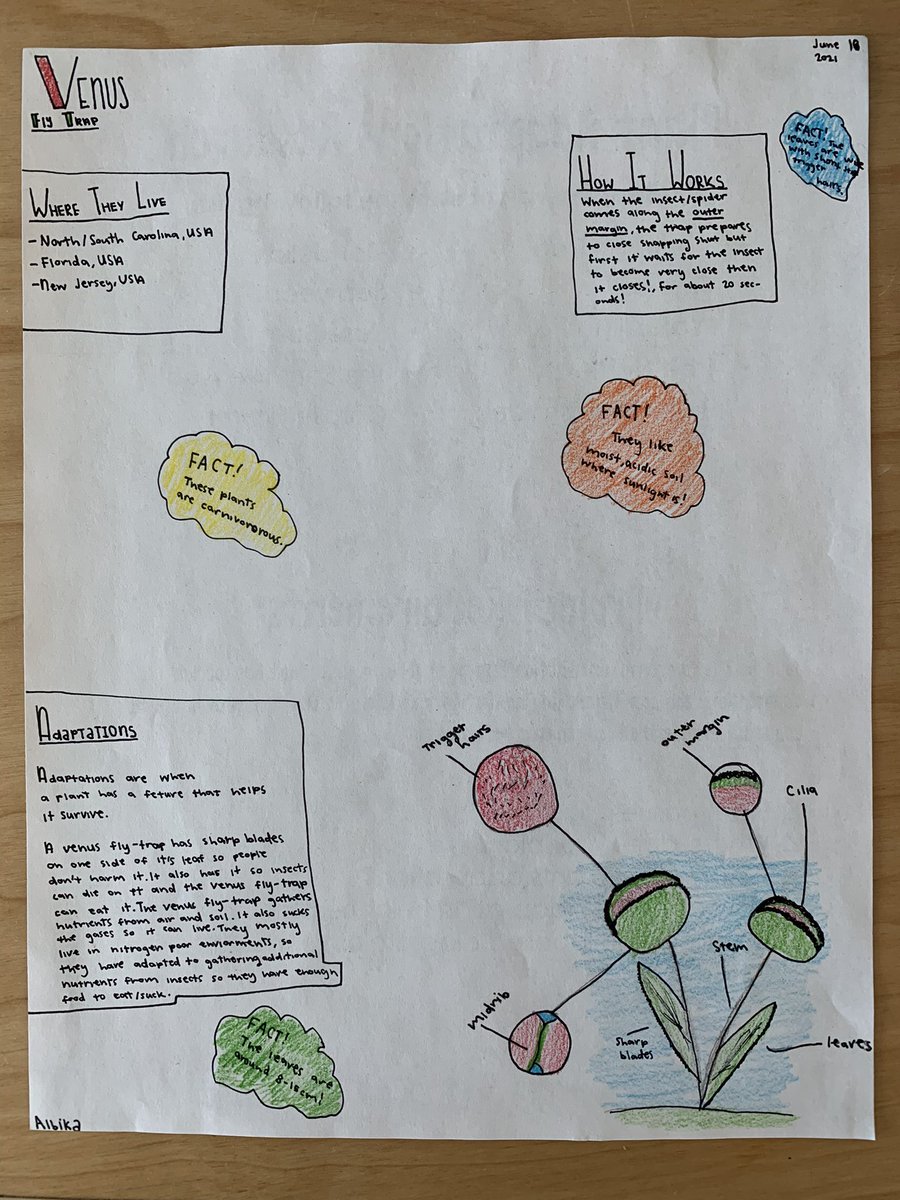 Venus
Fly Trap
June 18
2021
FACT! The
leaves are
with short
trigger
hairs
Where They Live
-North/South Carolina, USA
-Florida, USA
-New Jersey, USA
How It Works
When the insect/spider
comes along the outer
margin, the trap prepares
to close snapping shut but
first it waits for the insect
to become very close then
it closes!, for about 20 sec-
onds!
FACT!
They like
moist, acidic soil
where sunlight is!
FACT!
These plants
are carnivororous.
Adaptations
Adaptations are when
a plant has a feture that helps
it survive.
A venus fly-trap has sharp blades
on one side of it's leaf so people
don't harm it. It also has it so insects
can die on it and the venus fly-trap
can eat it. The venus fly-trap gathers
nutrients from air and soil. It also sucks
the gases so it can live. They mostly
live in nitrogen poor enviorments, so
they have adapted to gathering additional
nutrients from insects so they have enough
food to eat/suck.
Trigger
hairs
outer
margin
Cilia
Stem
Midrib
Sharp
blades
leaves
FACT!
The leaves are
around 8-15cm!
Albika